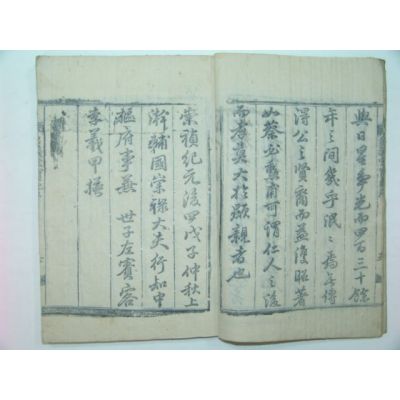 與日星爭光而四百三十餘
年之間幾乎泯泯焉無傳
得公之賢裔而益復昭著
如蔡公塾甫可謂仁人之後
而孝莫大於顯親者也
崇禎紀元後甲戊子仲秋上
澣輔國崇祿大夫行知中
樞府事兼 世子左賓客
李義甲撰